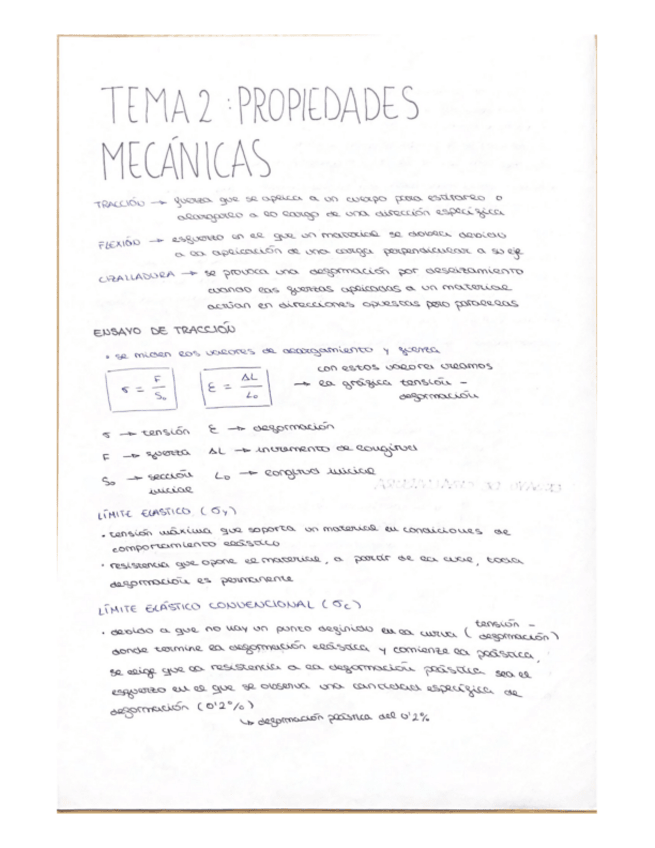 TEMA 2 : PROPIEDADES
MECÁNICAS
TRACCIÓN → fuerza que se aplica a un cuerpo para estirarlo o
alargarlo a lo largo de una dirección específica
FLEXIÓN → esfuerzo en el que un material se dobla debido
a la aplicación de una carga perpendicular a su eje
CIZALLADURA → se provoca una deformación por deslizamiento
cuando las fuerzas aplicadas a un material
actúan en direcciones opuestas pero paralelas
ENSAYO DE TRACCIÓN
• se miden los valores de alargamiento y fuerza
σ = F / S₀   ε = ΔL / L₀   con estos valores creamos
→ la gráfica tensión -
deformación
σ → tensión   ε → deformación
F → fuerza   ΔL → incremento de longitud
S₀ → sección   L₀ → longitud inicial
inicial
LÍMITE ELÁSTICO ( σy )
• tensión máxima que soporta un material en condiciones de
comportamiento elástico
• resistencia que opone el material, a partir de la cual, toda
deformación es permanente
LÍMITE ELÁSTICO CONVENCIONAL ( σc )
• debido a que no hay un punto definido en la curva ( tensión - deformación )
donde termine la deformación elástica y comienza la plástica,
se elige que la resistencia a la deformación plástica sea el
esfuerzo en el que se observa una cantidad específica de
deformación ( 0'2% )
↳ deformación plástica del 0'2%